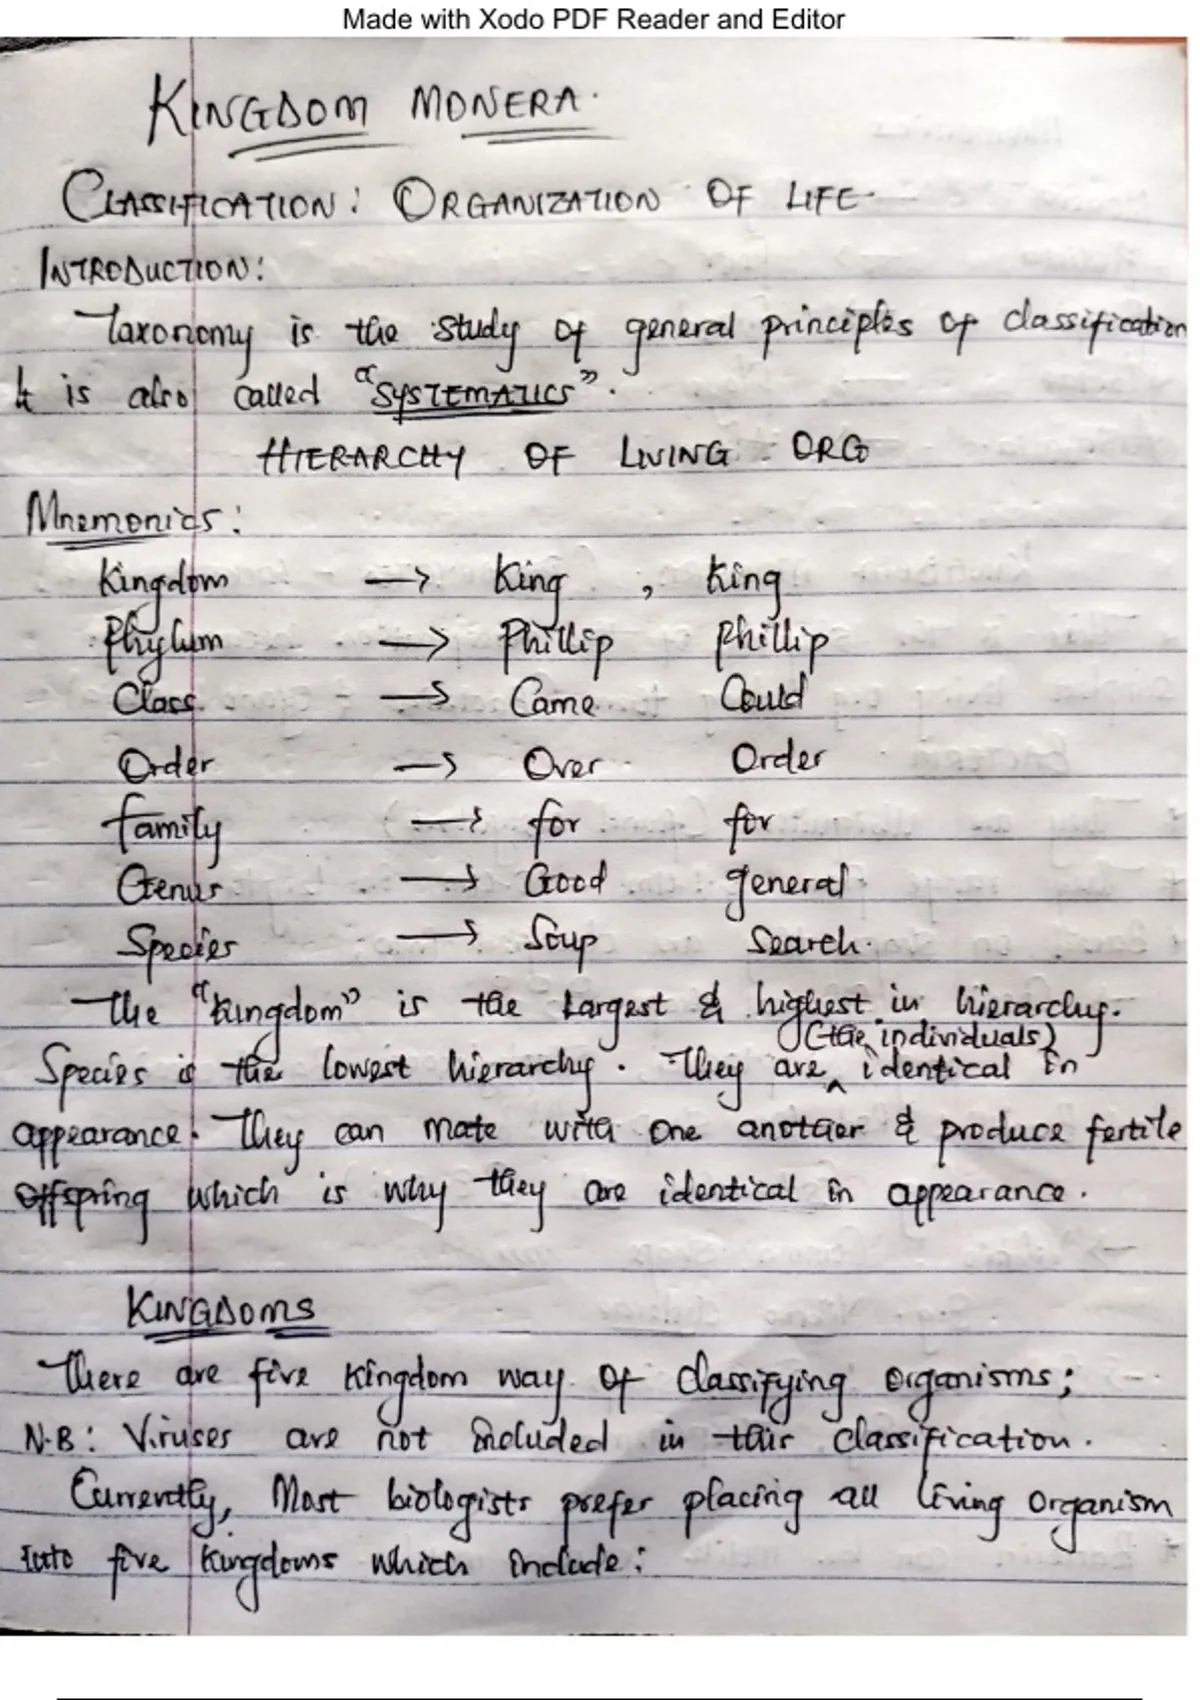 Made with Xodo PDF Reader and Editor
KINGDOM MONERA.
CLASSIFICATION: ORGANIZATION OF LIFE.
INTRODUCTION:
Taxonomy is the study of general principles of classification
It is also called "SYSTEMATICS".
HIERARCHY OF LIVING ORG
Mnemonics:
Kingdom → King , King
Phylum → Phillip Phillip
Class → Came Could
Order → Over Order
Family → for for
Genus → Good general
Species → Soup Search.
The "kingdom" is the largest & highest in hierarchy.
(the individuals)
Species is the lowest hierarchy. They are ^ identical in
appearance. They can mate with one another & produce fertile
offspring which is why they are identical in appearance.
KINGDOMS
There are five kingdom way of classifying organisms;
N.B: Viruses are not included in this classification.
Currently, Most biologists prefer placing all living organism
into five kingdoms which include: